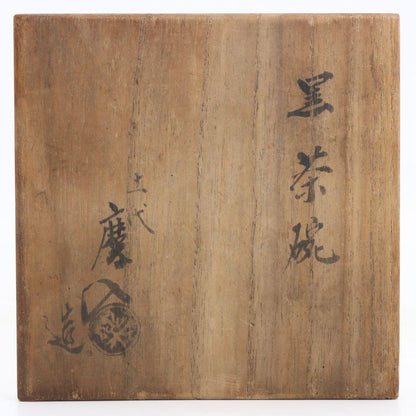 黒茶碗
十一代
慶入
造